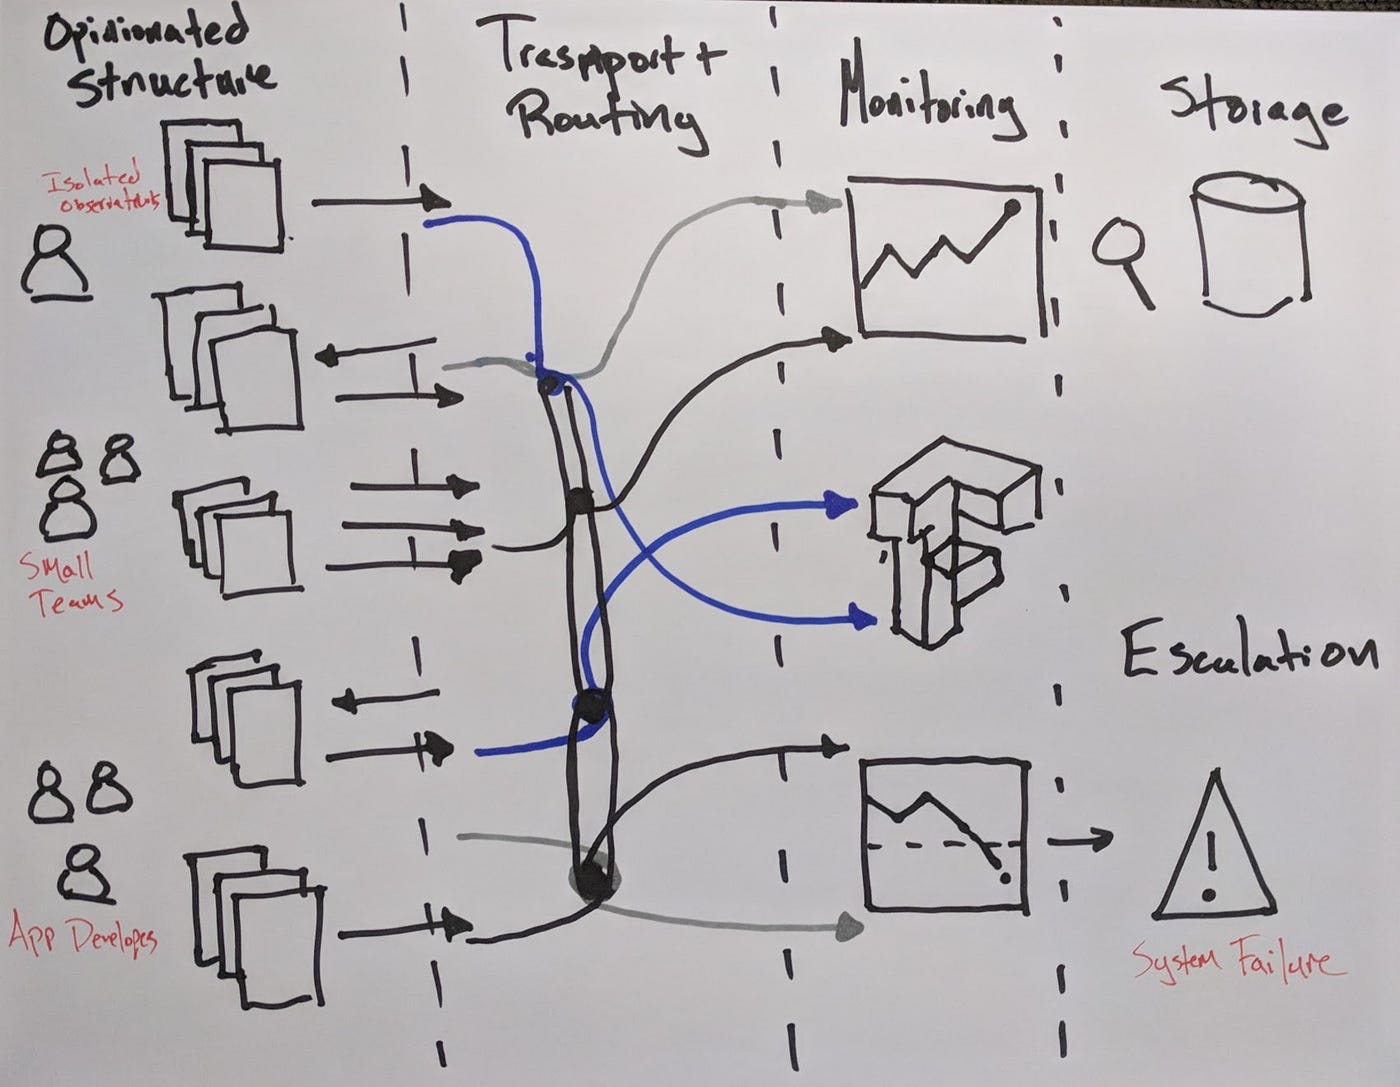 Opinionated
Structure
Trasnport +
Routing
Monitoring
Storage
Isolated
Observations
Small
Teams
Escalation
App Developes
System Failure
!